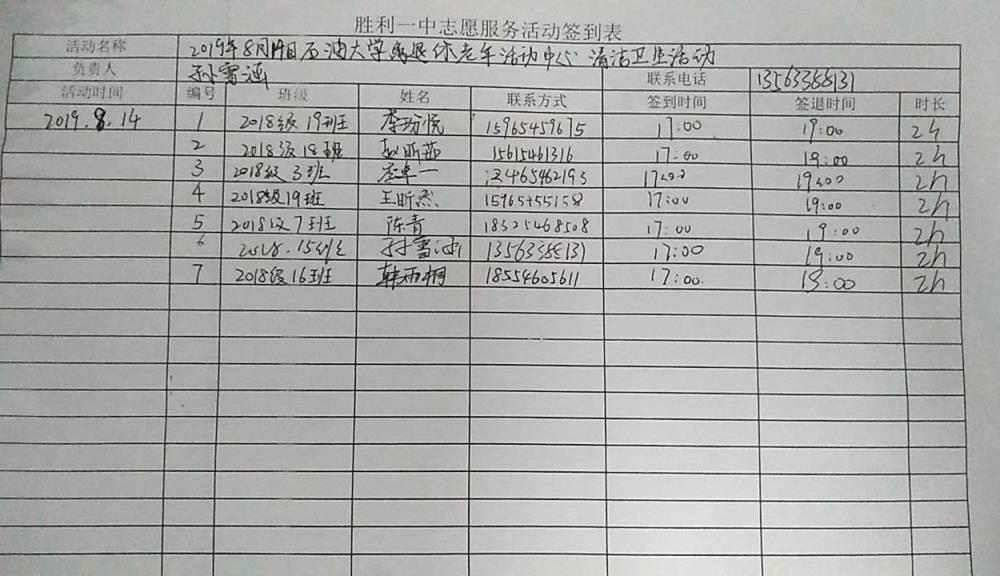 胜利一中志愿服务活动签到表
活动名称 2019年8月14日石油大学离退休老年活动中心 清洁卫生活动
负责人 孙雪涵 联系电话 13563388131
活动时间 编号 班级 姓名 联系方式 签到时间 签退时间 时长
2019.8.14 1 2018级19班 李玢悦 15965459675 17:00 19:00 2h
2 2018级18班 赵昕茹 15615461316 17:00 19:00 2h
3 2018级3班 17:00 19:00 2h
4 2018级19班 王昕杰 17:00 19:00 2h
5 2018级7班 陈青 18325468508 17:00 19:00 2h
6 2018.15班 孙雪涵 13563388131 17:00 19:00 2h
7 2018级16班 韩雨桐 18554605611 17:00 19:00 2h